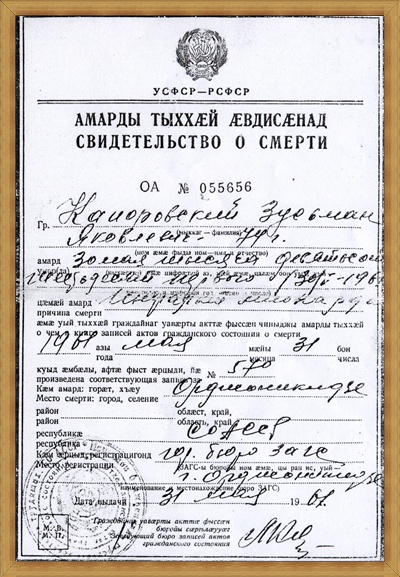 УСФСР—РСФСР
АМАРДЫ ТЫХХӔЙ ӔВДИСӔНАД
СВИДЕТЕЛЬСТВО О СМЕРТИ
ОА № 055656
Гр. Капоровский Зусьман
(мыггаг — фамилия)
Яковлевич - 74 г.
(ном ӕмӕ фыды ном—имя и отчество)
амард
30 мая тысяча девятьсот
шестьдесят первого (30/V-1961
цӕмӕй амард
причина смерти
ӕмӕ уый тыххӕй граждайнаг уавӕрты актты фыссӕн чиныджы амарды тыххӕй
о чем в книге записей актов гражданского состояния о смерти
1961 азы мая мӕйы 31 бон
года месяца числа
куыд ӕмбӕлы, афтӕ фыст ӕрцыди, № 570
произведена соответствующая запись за
Кӕм амард: горӕт, хъӕу Орджоникидзе
Место смерти: город, селение
район облест, край,
район область, край,
республикӕ СОАССР
республика
Кӕм ӕрӕнд регистрацигонд гор. бюро ЗАГС
Место регистрации
г. Орджоникидзе
наименование и местонахождение бюро ЗАГС)
Дата выдачи 31 мая 1961.
М. Б.
М. П.
Гражданаг уавӕрты актты фыссӕн
бюройы сӕргълӕууӕг
Заведующий бюро записей актов
гражданского состояния